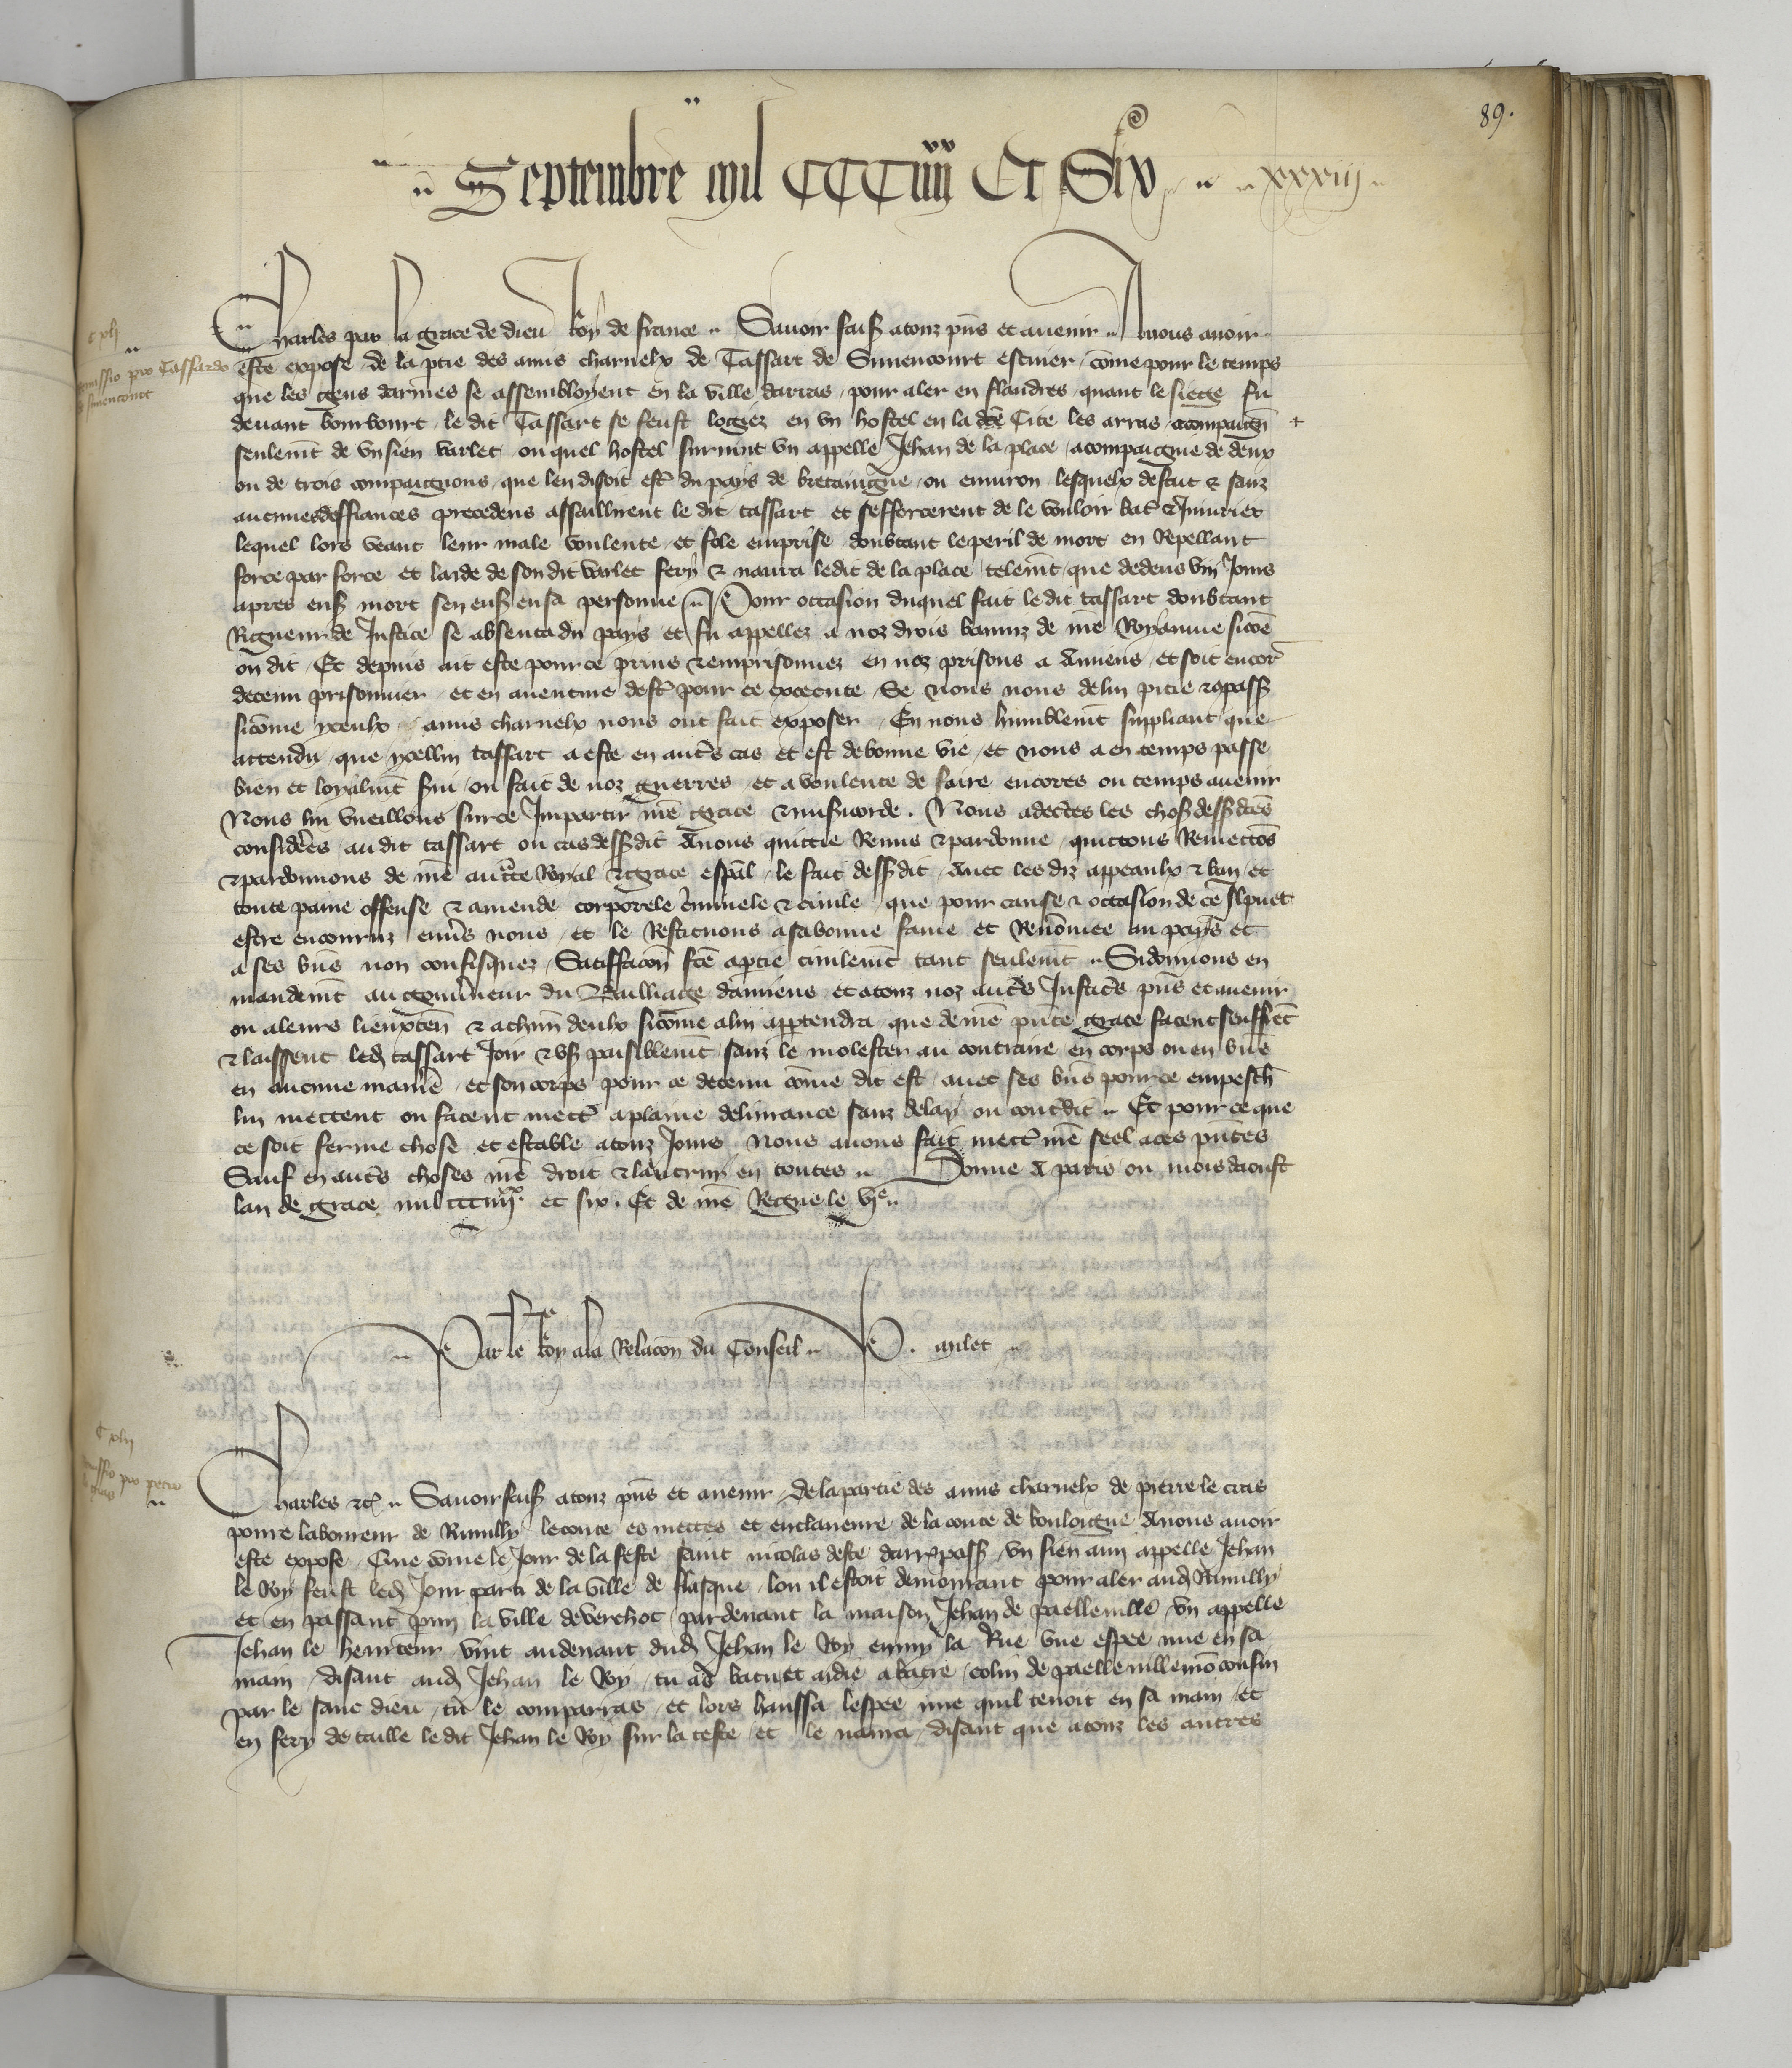 89.
Septembre mil CCC iiii xx Et Six xxxiiij
Charles par la grace de dieu Roy de france Savoir faisons a touz pñs et avenir A nous avoir
c xlj
Remissio pro Tassardo de simencourt
este expose de la ptie des amis charnelx de Tassart de Simencourt escuier, cõme pour le temps
que les gens darmes se assembloyent en la ville darras, pour aler en flandres, quant le siege fu
devant bourbourt, le dit Tassart se feust logiez en un hostel en la dcẽ Cite les arras acompaign̄
seulem̄t de un sien varlet ou quel hostel survint un appelle Jehan de la place, acompaignie de deux
ou de trois compaignons, que len disoit estr̄ du pays de bretaingne, ou environ, lesquelx de fait & sanz
aucunes deffiances precedens assaillirent le dit tassart et sefforcerent de le vouloir batr̄ & Iniurier
lequel lors veant leur male voulente et fole emprise doubtant le peril de mort en Repellant
force par force et laide de son dit varlet fery & navra ledit de la place, telem̄t que dedens viij Jours
apres ens mort sen ens en sa personne Pour occasion duquel fait le dit tassart doubtant
Rigueur de Justice se absenta du pays et fu appellez a noz drois banniz de nr̄e Royaume si cõe
on dit, Et depuis ait este pour ce prins & emprisonnez en noz prisons a Amiens, et soit encor̄
detenu prisonnier et en aventure destr̄ pour ce execute, Se nous navons de lui pitie & 9pass
si cõme yceulx amis charnelx nous ont fait exposer, En nous humblem̄t suppliant que
attendu que ycellui tassart a este en autr̄s cas et est de bonne vie, et nous a en temps passe
bien et loyalm̄t s̄vi, ou fait de noz guerres et a voulente de faire encores ou temps avenir
Nous lui vueillons sur ce Impartir nr̄e grace & misĩcorde. Nous adecertes les choses dess̄dcẽs
consider̄es, au dit tassart ou cas dess̄dit Avons quittie Remis & pardonne, quictons Remectõs
& pardonnons de nr̄e auctr̄te Royal & grace esp̄al, le fait dess̄dit Avec les diz appeaulx & ban et
toute paine offense & amende corporele c̄minele & civile, que pour cause & occasion de ce Il puet
estre encouruz env̄s nous, et le Restituons a sa bonne fame et Renõmee au pays et
a ses biẽs non confisquez, Satiffac̄on fcẽ a ptie civilem̄t tant seulem̄t Si donnons en
mandem̄t au gouv̄neur du Bailliage damiens et a touz noz autr̄s Justic̄s pñs et avenir
ou a leurs lieuxten̄ & a chũn deulx si cõme a lui appartendra que de nr̄e pñte grace facent seuffrẽt
& laissent led̄ tassart Joir & us̄ paisiblem̄t sanz le molester au contraire en corps ou en biẽs
en aucune manie᷑, et son corps pour ce detenu cõme dit est, avec ses biẽs pour ce empesch̄
lui mettent ou facent mettr̄ a plaine delivrance sanz delay ou contr̄dit Et pour ce que
ce soit ferme chose et estable a touz Jours Nous avons fait mettr̄ nr̄e seel a ces pñtes
Sauf en autr̄s choses nr̄e droit & lautruy en toutes Donne A paris ou mois daoust
lan de grace mil ccc iiij xx et six. Et de nr̄e Regne le vje
Par le Roy a la Relac̄on du Conseil P. aulet
c xlij
Remissio pro petro le cras
Charles &c̄ Savoir faisons a touz pñs et avenir de la partie des amis charnelx de pierre le cras
povre laboureur de Rumilly le conte es mettes et enclaveure de la conte de bouloigne A nous avoir
este expose Que cõme le Jour de la feste saint nicolas deste darr̄ 9pass̄ un sien ami appelle Jehan
le Roy feust led̄ Jour parti de la ville de flasque, lou il estoit demourant pour aler aud̄ Rumilly
et en passant pmy la ville deverchoc, par devant la maison Jehan de paelleville, un appelle
Jehan le heriteur vint au devant dud̄ Jehan le Roy emmy la Rue une espee nue en sa
main, disant aud̄ Jehan le Roy, tu as batu et aidie a batre, colin de paelleville mõ cousin
par le sanc dieu, tu le comparras, et lors haussa lespee nue quil tenoit en sa main, et
en fery de taille le dit Jehan le Roy sur la teste, et le navra, disant que a touz les autres